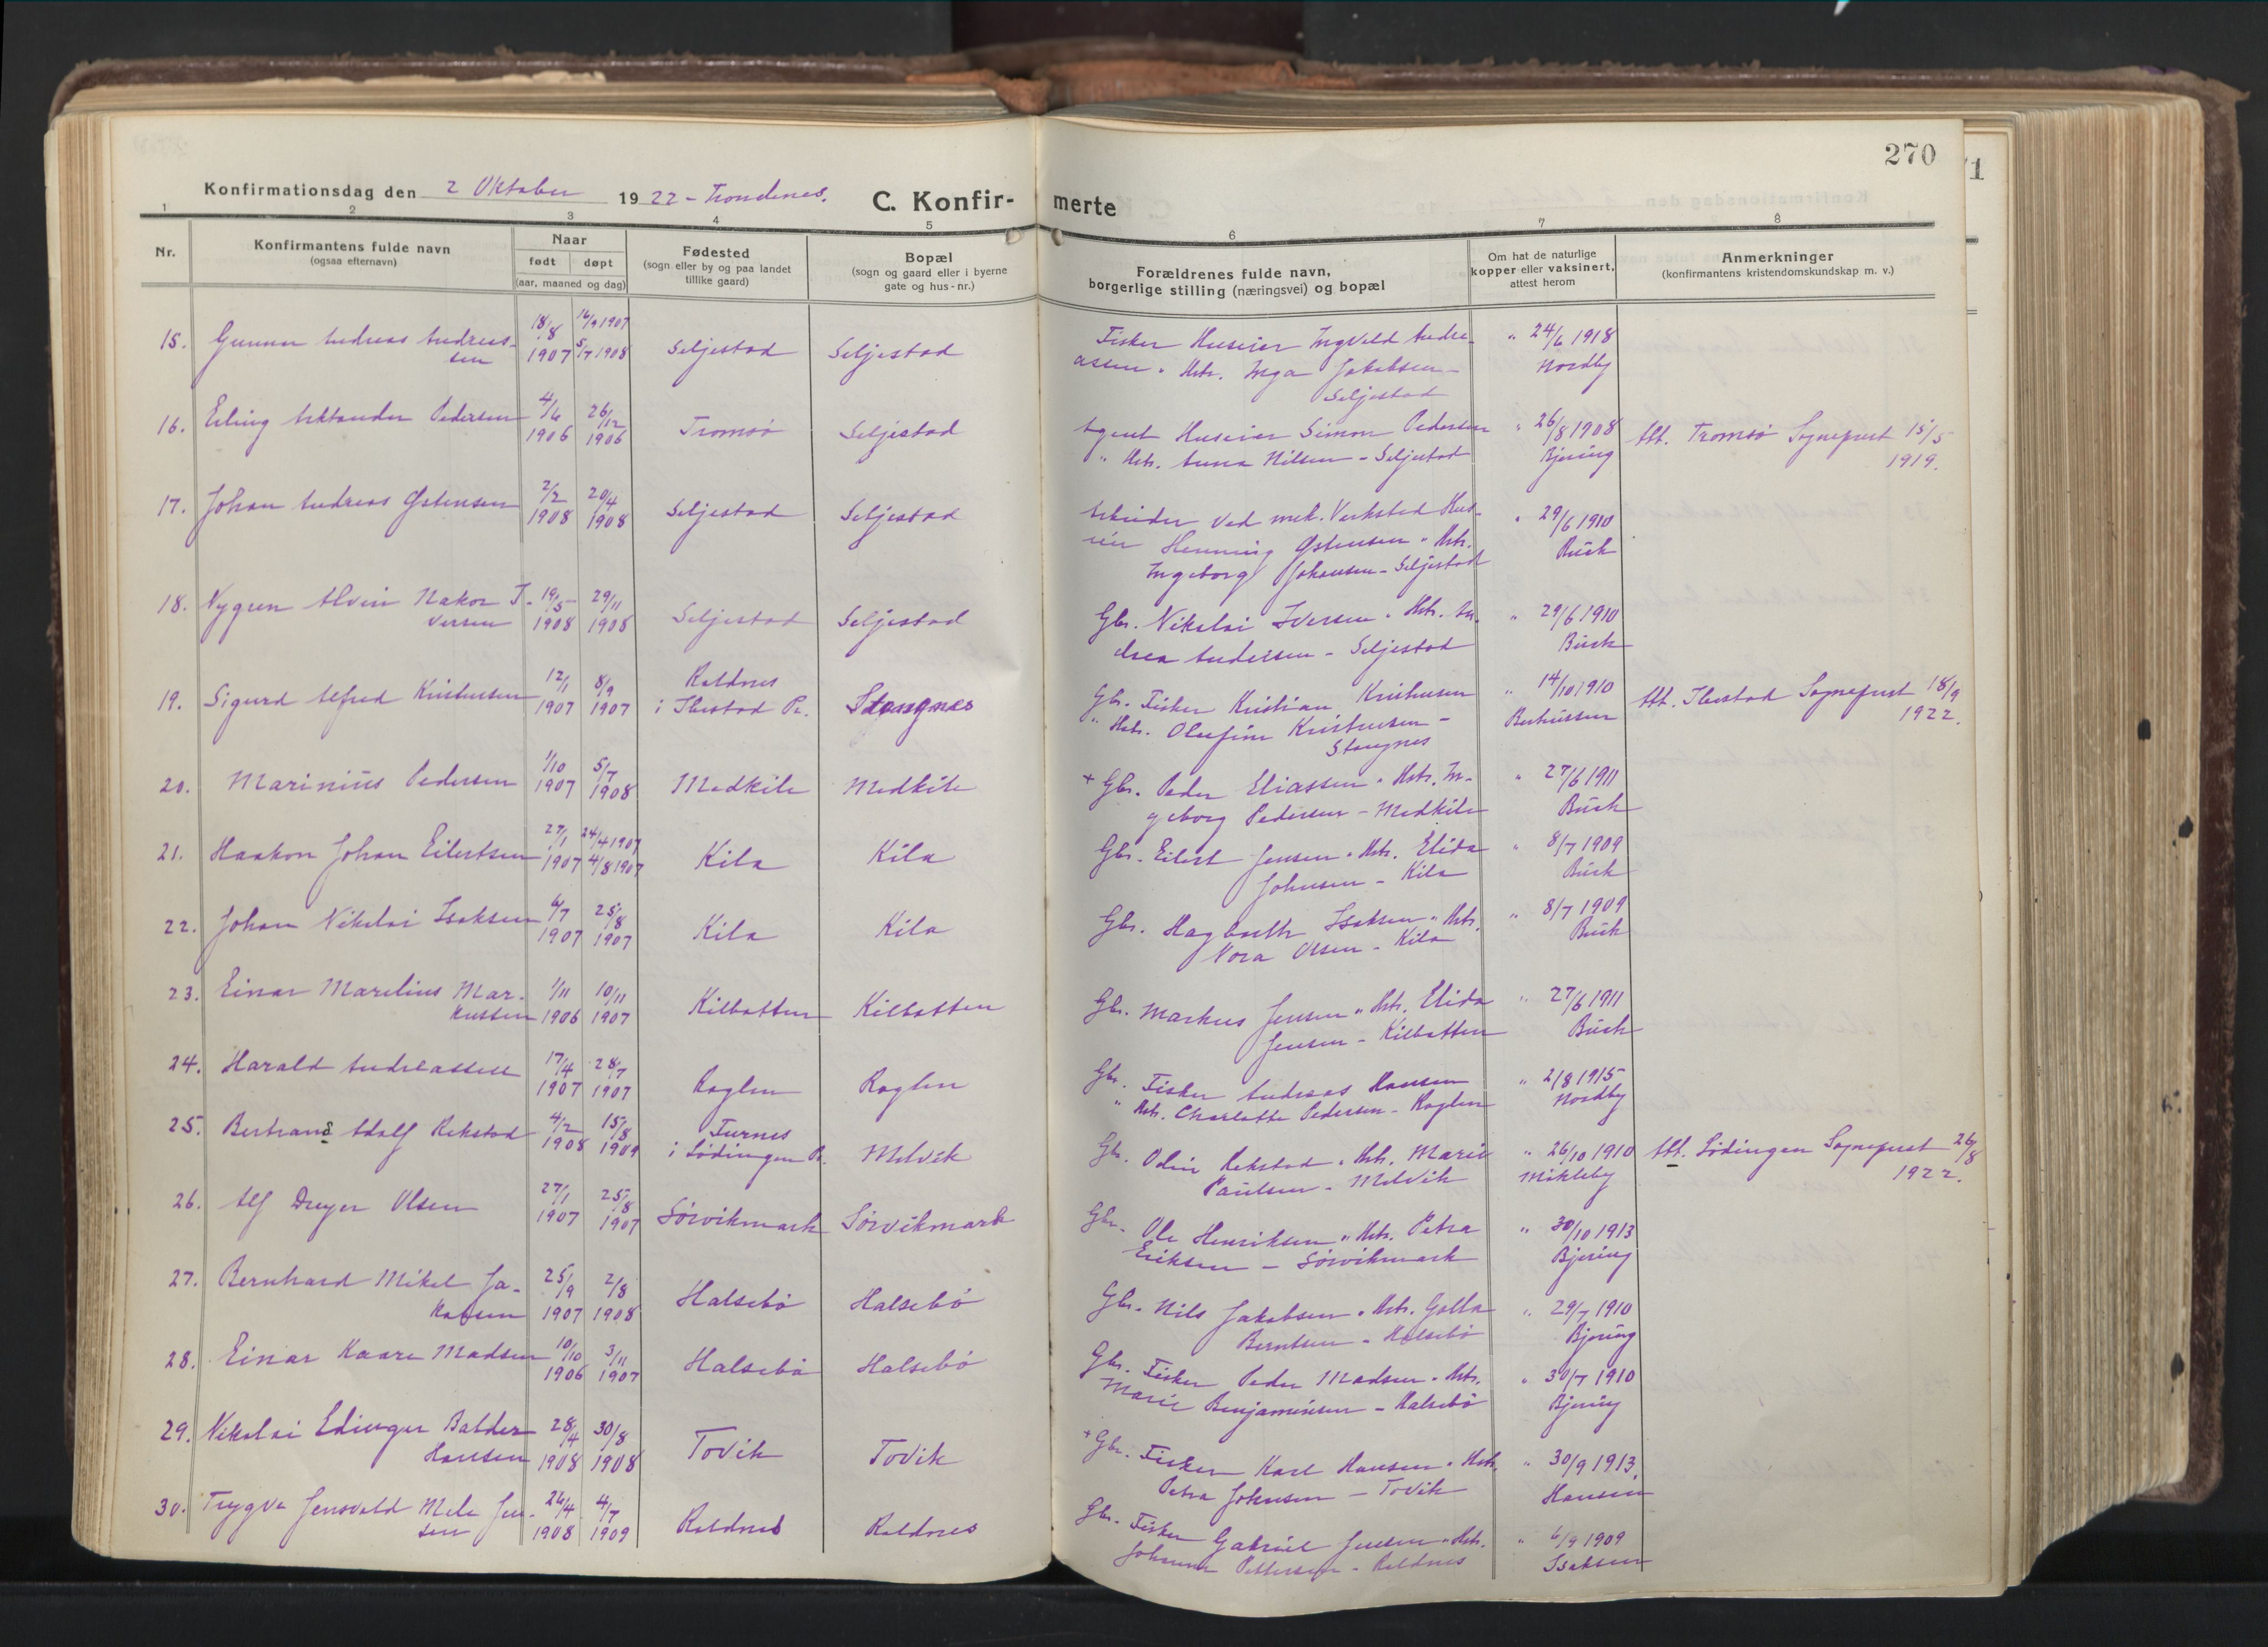 270
Konfirmationsdag den 2 Oktober 1922 - Trondenes.
C. Konfir- merte
1 2 3 4 5 6 7 8
Nr.
Konfirmantens fulde navn
(ogsaa efternavn)
Naar
født døpt
(aar, maaned og dag)
Fødested
(sogn eller by og paa landet
tillike gaard)
Bopæl
(sogn og gaard eller i byerne
gate og hus-nr.)
Forældrenes fulde navn,
borgerlige stilling (næringsvei) og bopæl
Om hat de naturlige
kopper eller vaksinert,
attest herom
Anmerkninger
(konfirmantens kristendomskundskap m. v.)
15. Gunnar Andreas Andreas-
sen
18/8 1907
16/9 1907
5/7 1908
Seljestad
Seljestad
Fisker Huseier Ingvald Andre-
assen " Hstr. Inga Jakobsen -
Seljestad
" 24/6 1918
Nordby
16. Erling Pedersen
4/6 1906
26/12 1906
Tromsø
Seljestad
Agent Huseier Simon Pedersen
" Hstr. Anna Nilsen - Seljestad
" 26/8 1908
Bjering
Att. Tromsø Sogneprest 15/5
1919.
17. Johan Andreas Østensen
2/2 1908
20/4 1908
Seljestad
Seljestad
Arbeider ved mek. Verksted Hus-
eier Henning Østensen " Hstr.
Ingeborg Johansen - Seljestad
" 29/6 1910
Buck
18. Nygren Alvin Hakon I-
versen
19/5 1908
29/11 1908
Seljestad
Seljestad
Gbr. Nikolai Iversen " Hstr. An-
drea Andersen - Seljestad
" 29/6 1910
Buck
19. Sigurd Alfred Kristensen
12/1 1907
8/9 1907
Roldnes
i Ibestad Pr.
Stangnes
Gbr. Fisker Kristian Kristensen
" Hstr. Olufine Kristensen -
Stangnes
" 14/10 1910
Berthussen
Att. Ibestad Sogneprest 18/9
1922.
20. Marinius Pedersen
1/10 1907
5/7 1908
Medkila
Medkila
+ Gbr. Peder Eliassen " Hstr. In-
geborg Pedersen - Medkila
" 27/6 1911
Buck
21. Haakon Johan Eilertsen
27/1 1907
24/4 1907
4/8 1907
Kila
Kila
Gbr. Eilert Jensen " Hstr. Elida
Johnsen - Kila
" 8/7 1909
Buck
22. Johan Nikolai Isaksen
6/7 1907
25/8 1907
Kila
Kila
Gbr. Hagbarth Isaksen " Hstr.
Nora Olsen - Kila
" 8/7 1909
Buck
23. Einar Marelius Mar-
kussen
1/11 1906
10/11 1907
Kilbotten
Kilbotten
Gbr. Markus Jensen " Hstr. Elida
Jensen - Kilbotten
" 27/6 1911
Buck
24. Harald Andreassen
17/4 1907
28/7 1907
Roglen
Roglen
Gbr. Fisker Andreas Hansen
" Hstr. Charlotte Pedersen - Roglen
" 2/8 1915
Nordby
25. Bertrand Adolf Rekstad
4/2 1908
15/8 1909
Furnes
i Lødingen Pr.
Melvik
Gbr. Odin Rekstad " Hstr. Marie
Paulsen - Melvik
" 26/10 1910
Mikleby
Att. Lødingen Sogneprest 26/8
1922.
26. Alf Dreyer Olsen
27/1 1907
25/8 1907
Sørvikmark
Sørvikmark
Gbr. Ole Henriksen " Hstr. Petra
Eriksen - Sørvikmark
" 30/10 1913
Bjering
27. Bernhard Mikal Ja-
kobsen
25/9 1907
2/8 1908
Halsebø
Halsebø
Gbr. Nils Jakobsen " Hstr. Golla
Berntsen - Halsebø
" 29/7 1910
Bjering
28. Einar Kaare Madsen
10/10 1906
3/11 1907
Halsebø
Halsebø
Gbr. Fisker Peder Madsen " Hstr.
Marie Benjaminsen - Halsebø
" 30/7 1910
Bjering
29. Nikolai Edinger Balder
Hansen
28/4 1908
30/8 1908
Tovik
Tovik
+ Gbr. Fisker Karl Hansen " Hstr.
Petra Johnsen - Tovik
" 30/9 1913.
Hansen
30. Trygve Jensvold Jen-
sen
26/4 1908
4/7 1909
Roldnes
Roldnes
Gbr. Fisker Gabriel Jensen " Hstr.
Johanna Pettersen - Roldnes
" 6/9 1909
Isaksen